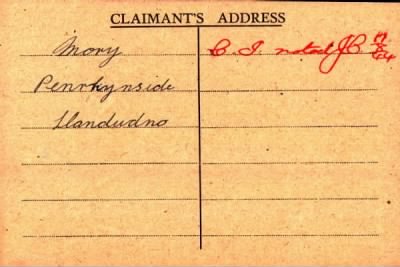 CLAIMANT'S ADDRESS
Mory
Penrhynside
Llandudno
C. I. noted JB 17/8/64